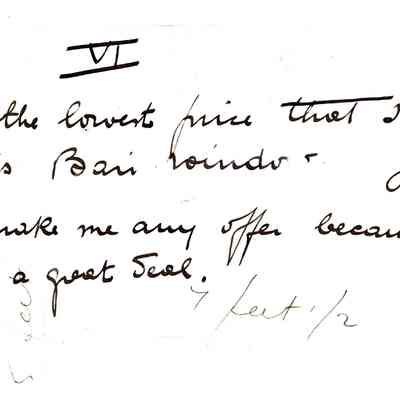 VI
the lowest price that I
s Bari windo
make me any offer becau
a great deal.
7 feet 1/2